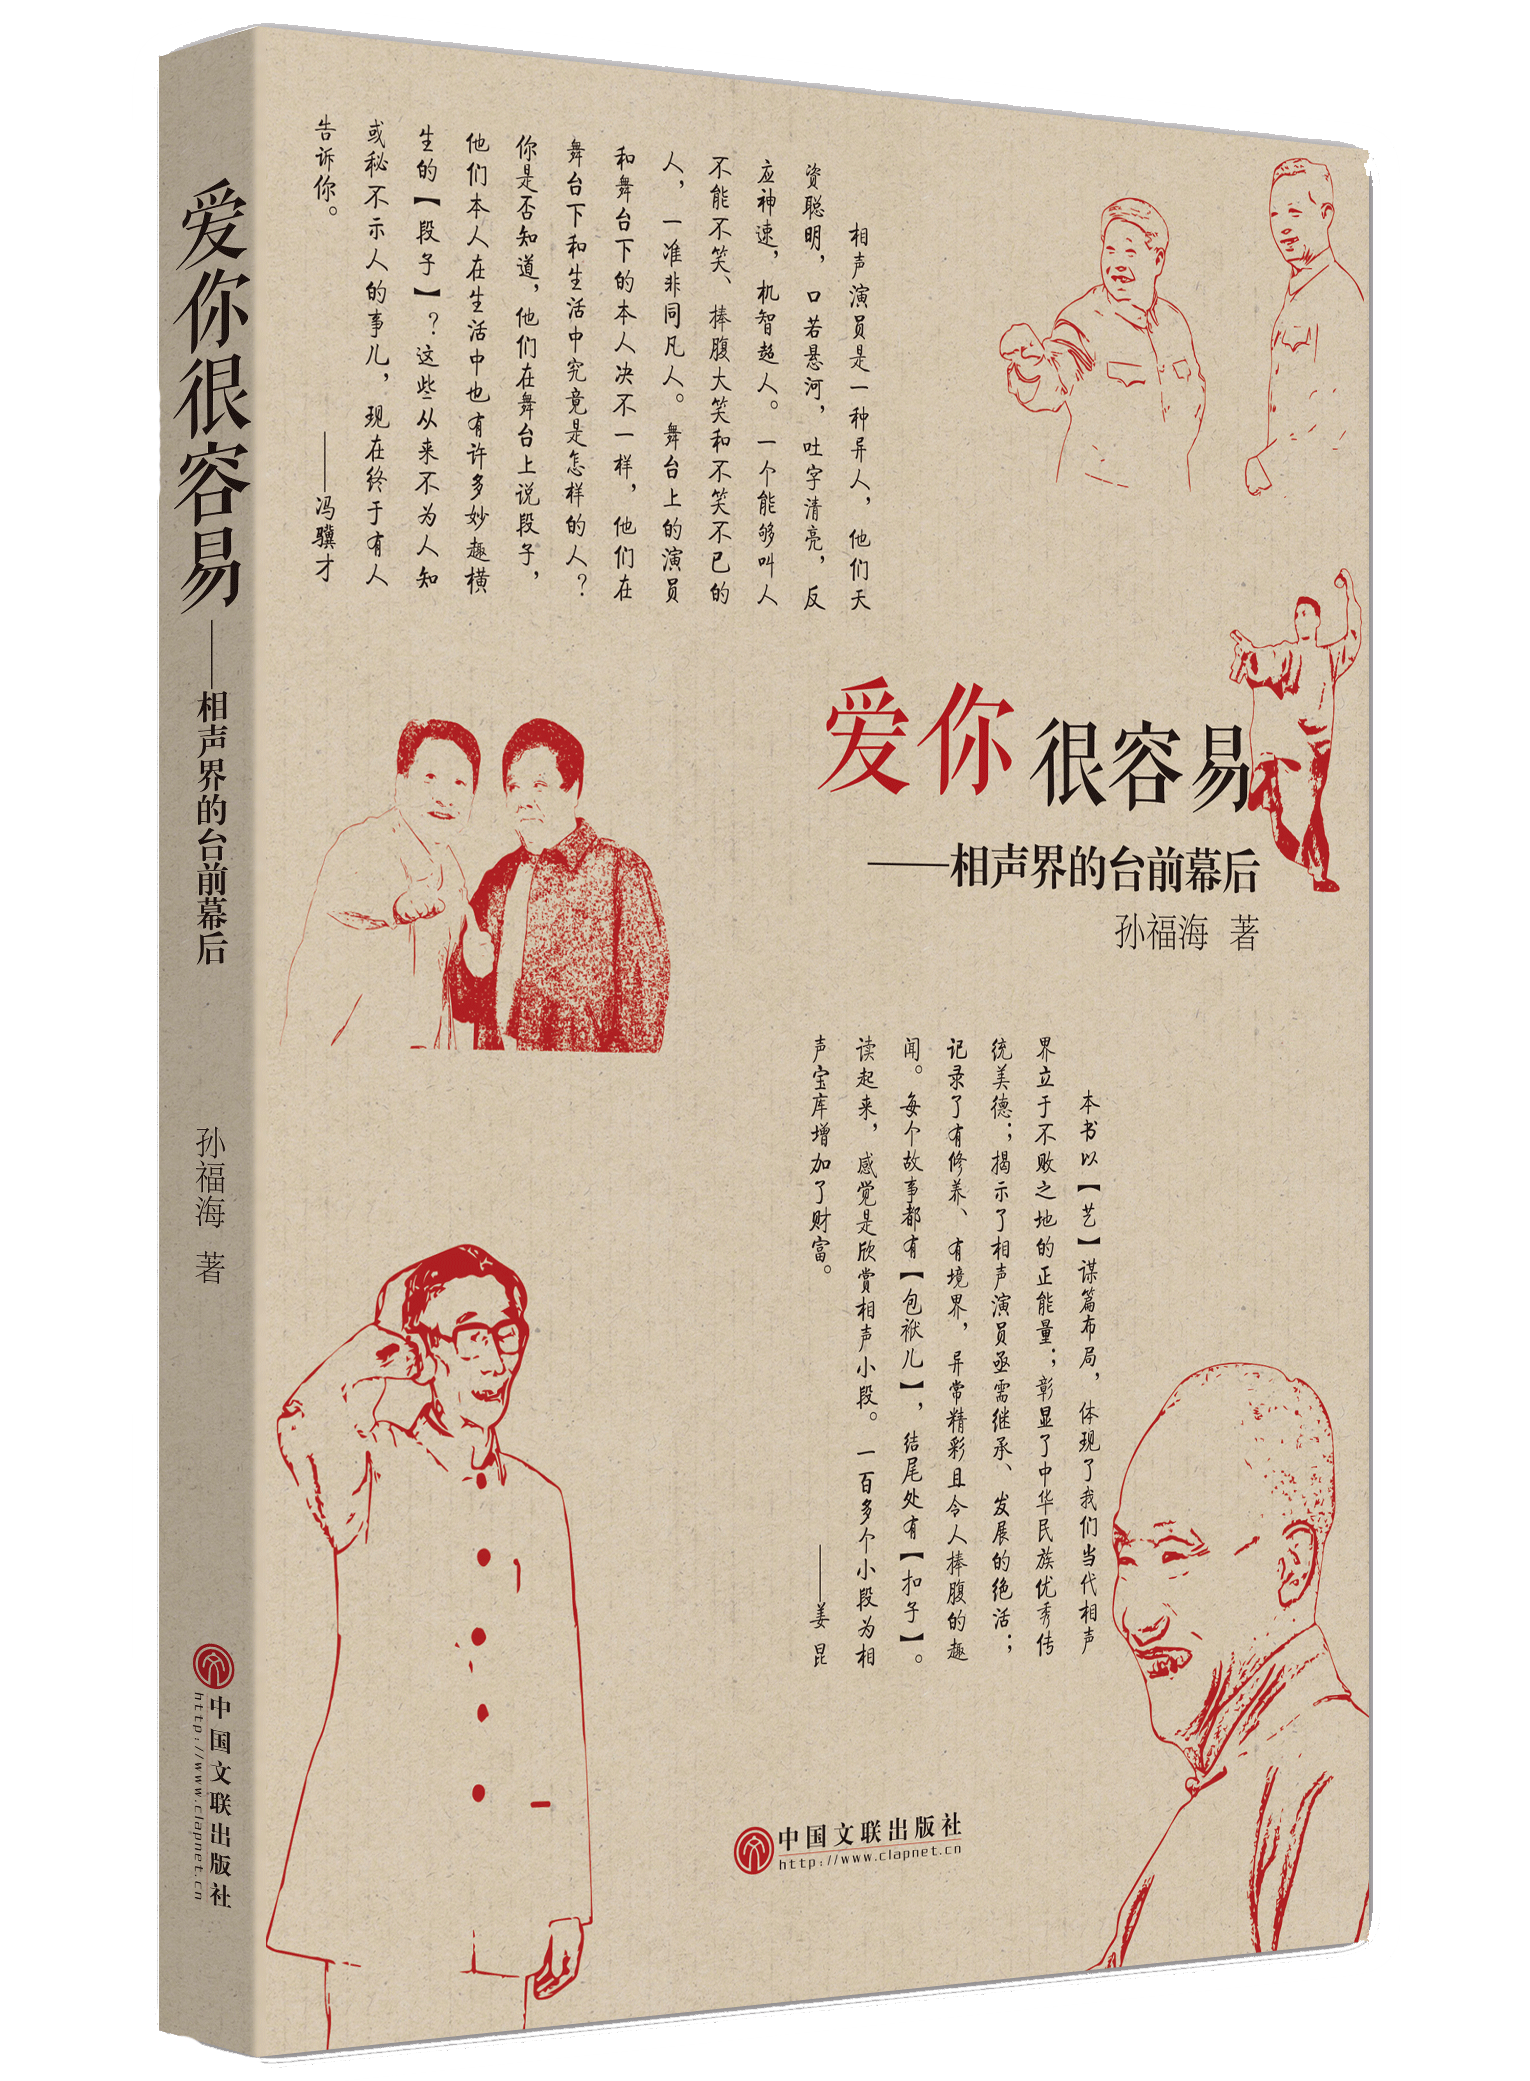 爱你很容易
——相声界的台前幕后
孙福海 著
中国文联出版社
http://www.clapnet.cn
相声演员是一种异人，他们天
资聪明，口若悬河，吐字清亮，反
应神速，机智超人。一个能够叫人
不能不笑、捧腹大笑和不笑不已的
人，一准非同凡人。舞台上的演员
和舞台下的本人决不一样，他们在
舞台下和生活中究竟是怎样的人？
你是否知道，他们在舞台上说段子，
他们本人在生活中也有许多妙趣横
生的【段子】？这些从来不为人知
或秘不示人的事儿，现在终于有人
告诉你。
——冯骥才
爱你很容易
——相声界的台前幕后
孙福海 著
本书以【艺】谋篇布局，体现了我们当代相声
界立于不败之地的正能量；彰显了中华民族优秀传
统美德；揭示了相声演员亟需继承、发展的绝活；
记录了有修养、有境界，异常精彩且令人捧腹的趣
闻。每个故事都有【包袱儿】，结尾处有【扣子】。
读起来，感觉是欣赏相声小段。一百多个小段为相
声宝库增加了财富。
——姜昆
中国文联出版社
http://www.clapnet.cn